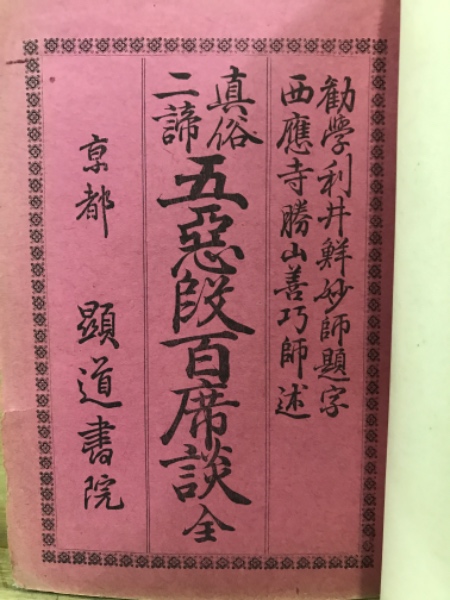 勧學利井鮮妙師題字
西應寺勝山善巧師述
真俗
二諦
五惡段百席談全
京都 顯道書院